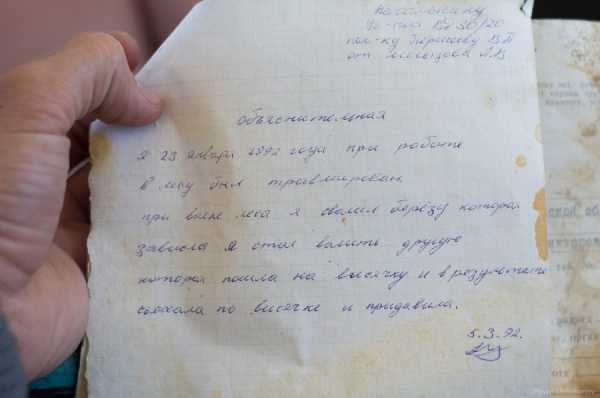 Начальнику
Уч-ния ВД 30/20
пол-ку Пермякову В.П
от
Объяснительная
Я 23 января 1992 года при работе
в лесу был травмирован.
при валке леса я свалил берёзу которая
зависла Я стал валить другую
которая пошла на высячку и в результате
съехала по висячке и придавила.
5.3.92.